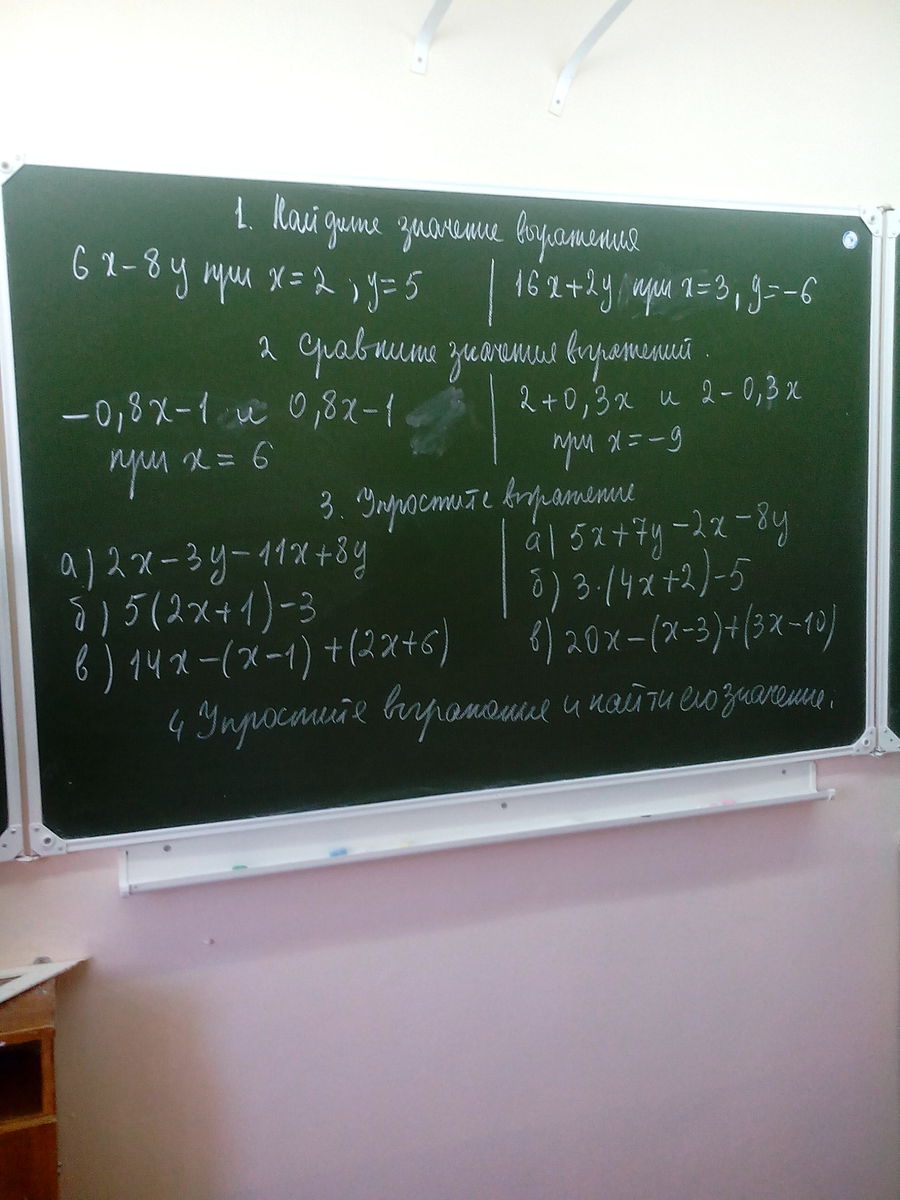 1. Найдите значение выражения
6x-8y при x=2, y=5
16x+2y при x=3, y=-6
2 Сравните значения выражений.
-0,8x-1 и 0,8x-1
при x=6
2+0,3x и 2-0,3x
при x=-9
3. Упростите выражение
а) 2x-3y-11x+8y
б) 5(2x+1)-3
в) 14x-(x-1)+(2x+6)
а) 5x+7y-2x-8y
б) 3·(4x+2)-5
в) 20x-(x-3)+(3x-10)
4 Упростите выражение и найти его значение: